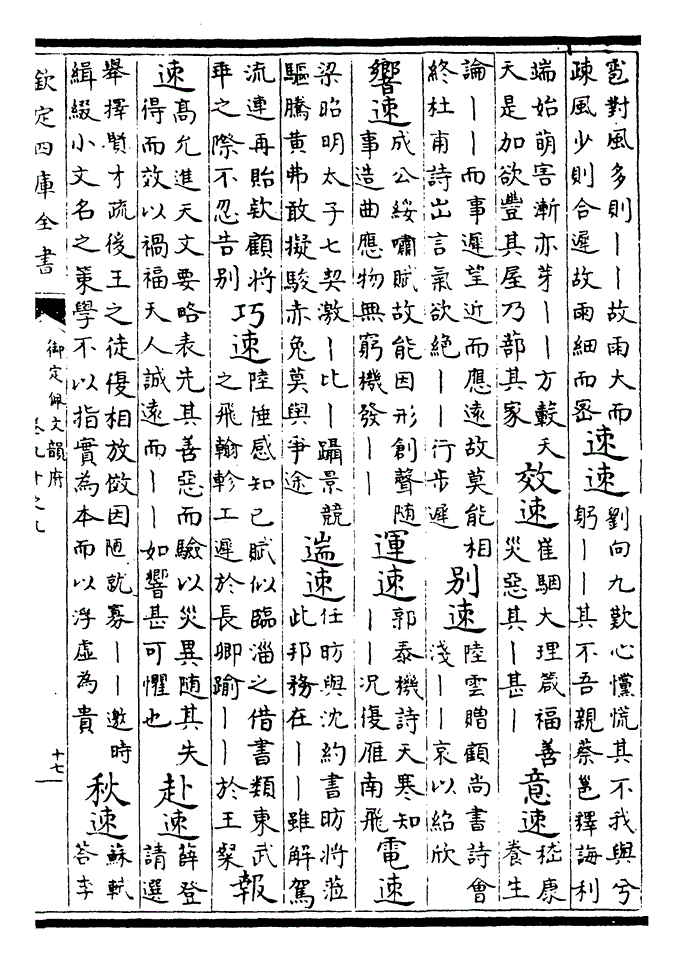 雹對風多則丨丨故雨大而
疎風少則合遲故雨細而宻
速速
劉向九歎心懭慌其不我與兮
躬丨丨其不吾親蔡邕釋誨利
端始萌害漸亦芽丨丨方轂天
天是加欲豐其屋乃蔀其家
效速
崔駰大理箴福善
災惡其丨甚丨
意速
嵇康
養生
論丨丨而事遲望近而應遠故莫能相
終杜甫詩出言氣欲絶丨丨行步遲
别速
陸雲贈顧尚書詩會
淺丨丨哀以紹欣
響速
成公綏嘯賦故能因形創聲隨
事造曲應物無窮機發丨丨
運速
郭泰機詩天寒知
丨丨况復雁南飛
電速
梁昭明太子七契激丨比丨躡景競
驅騰黄弗敢擬駿赤兔莫與爭途
遄速
任昉與沈約書昉將蒞
此邦務在丨丨雖解駕
流連再貽欵顧將
乖之際不忍告别
巧速
陸倕感知已賦似臨淄之借書類東武
之飛翰軫工遲於長卿踰丨丨於王粲
報
速
高允進天文要略表先其善惡而驗以災異隨其失
得而效以禍福天人誠遠而丨丨如響甚可懼也
赴速
薛登
請選
舉擇賢才疏後王之徒復相放倣因陋就寡丨丨邀時
緝綴小文名之策學不以指實為本而以浮虛為貴
秋速
蘇軾
答李
欽定四庫全書
御定佩文韻府
卷九十之九
十七